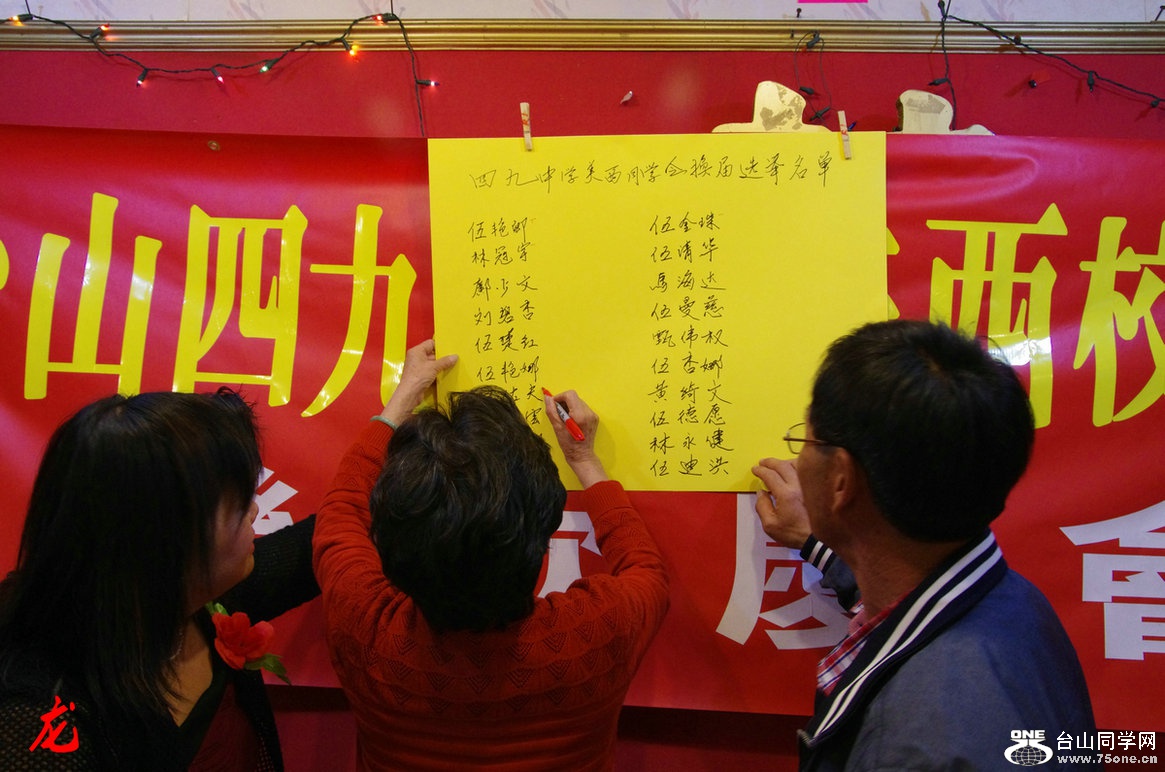 四九中学美西同学会换届选举名单
伍艳卿
林冠宇
邝少文
刘碧香
伍楚红
伍艳娜
伍金珠
伍清华
馬海达
伍曼慈
甄伟权
伍杏娜
黄绮文
伍德愿
林永健
伍迪洪
山四九
西校
慶會
龙
ONE
台山同学网
www.75one.cn